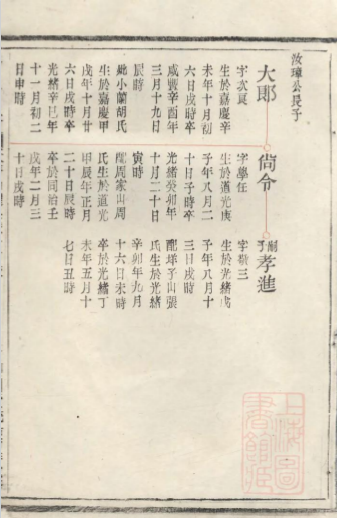 汝璋公長子
大郎
字次夏
生於嘉慶辛
未年十月初
六日戌時卒
咸豐辛酉年
三月十九日
辰時
配小蘭胡氏
生於嘉慶甲
戌年十月廿
六日戌時卒
光緒辛巳年
十一月初二
日申時
尙令
字學任
生於道光庚
子年八月二
十日子時卒
光緒癸卯年
十月二十日
寅時
配周家山周
氏生於道光
甲辰年正月
二十日辰時
卒於同治壬
戌年二月三
十日戌時
嗣子孝進
字敬三
生於光緒戊
子年八月十
三日戌時
子山張
氏生於光緒
辛卯年九月
十六日未時
卒於光緒丁
未年五月十
七日丑時
上海圖
書館藏